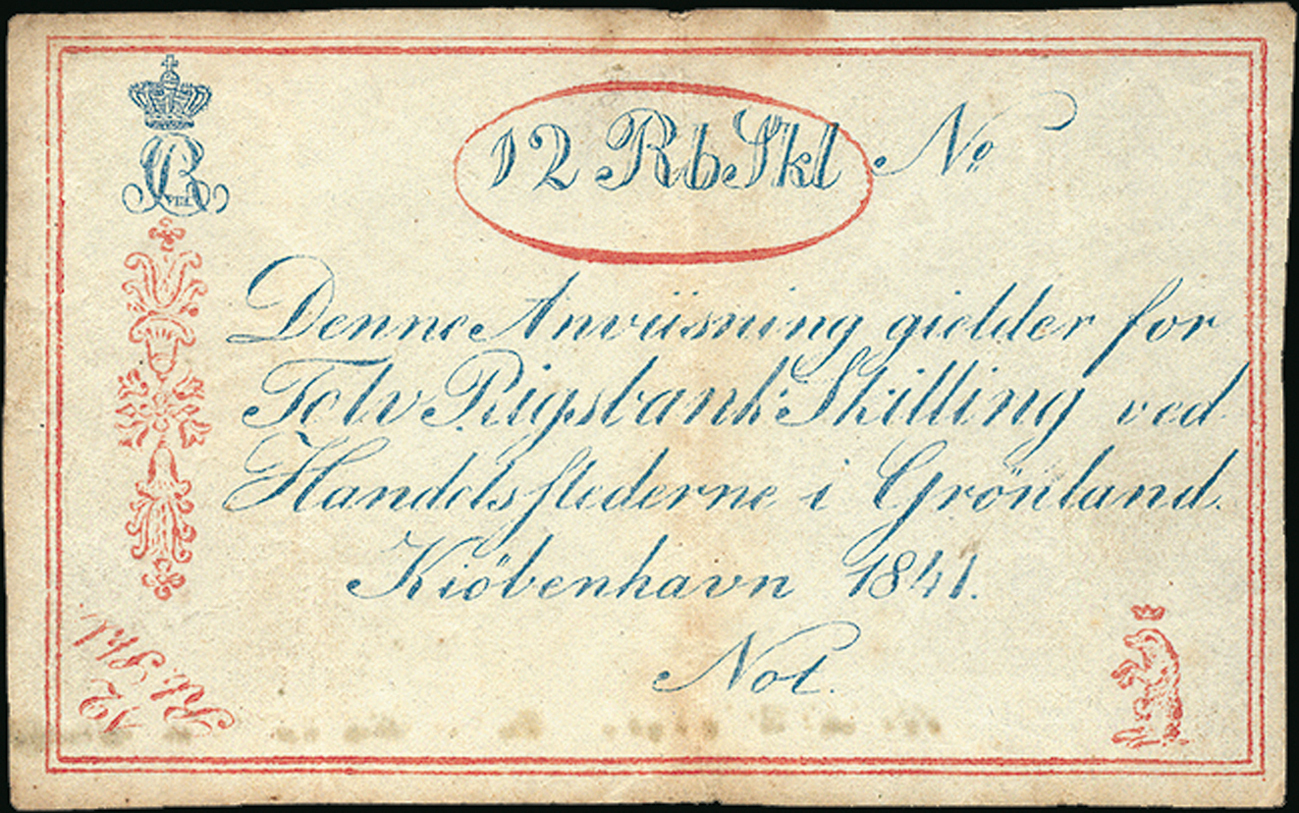 12 RbSkl No
Denne Anviisning gielder for
Tolv Rigsbank Skilling ved
Handelsstederne i Grönland.
Kiöbenhavn 1841.
Not.
12 Rb. Skl.
CR
VIII